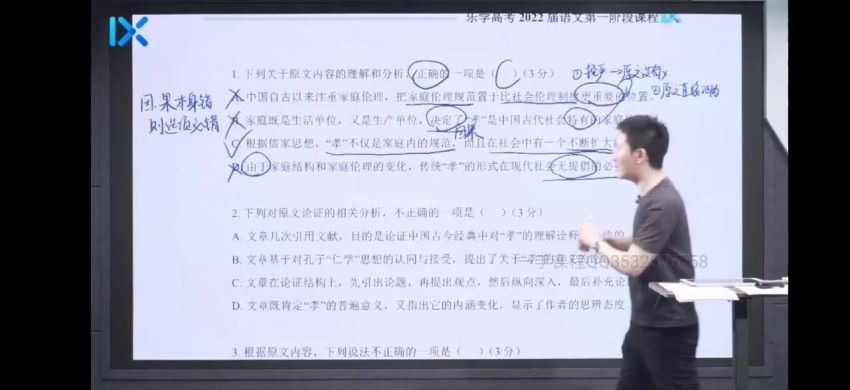 乐学高考 2022 届语文第一阶段课程
1. 下列关于原文内容的理解和分析，正确的一项是（ ）（3 分）
中国自古以来注重家庭伦理，把家庭伦理规范置于比社会伦理制度更重要的位置。
家庭既是生活单位，又是生产单位，决定了“孝”是中国古代社会特有的家庭
C. 根据儒家思想，“孝”不仅是家庭内的规范，而且在社会中有一个不断扩大
由于家庭结构和家庭伦理的变化，传统“孝”的形式在现代社会无提倡的必
因.果本身错
则选项必错
因果
2. 下列对原文论证的相关分析，不正确的一项是（ ）（3 分）
A. 文章几次引用文献，目的是论证中国古今经典中对“孝”的理解诠释
B. 文章基于对孔子“仁学”思想的认同与接受，提出了关于“孝”的
C. 文章在论证结构上，先引出论题，再提出观点，然后纵向深入，最后补充论
D. 文章既肯定“孝”的普遍意义，又指出它的内涵变化，显示了作者的思辨态度
3. 根据原文内容，下列说法不正确的一项是（ ）（3 分）